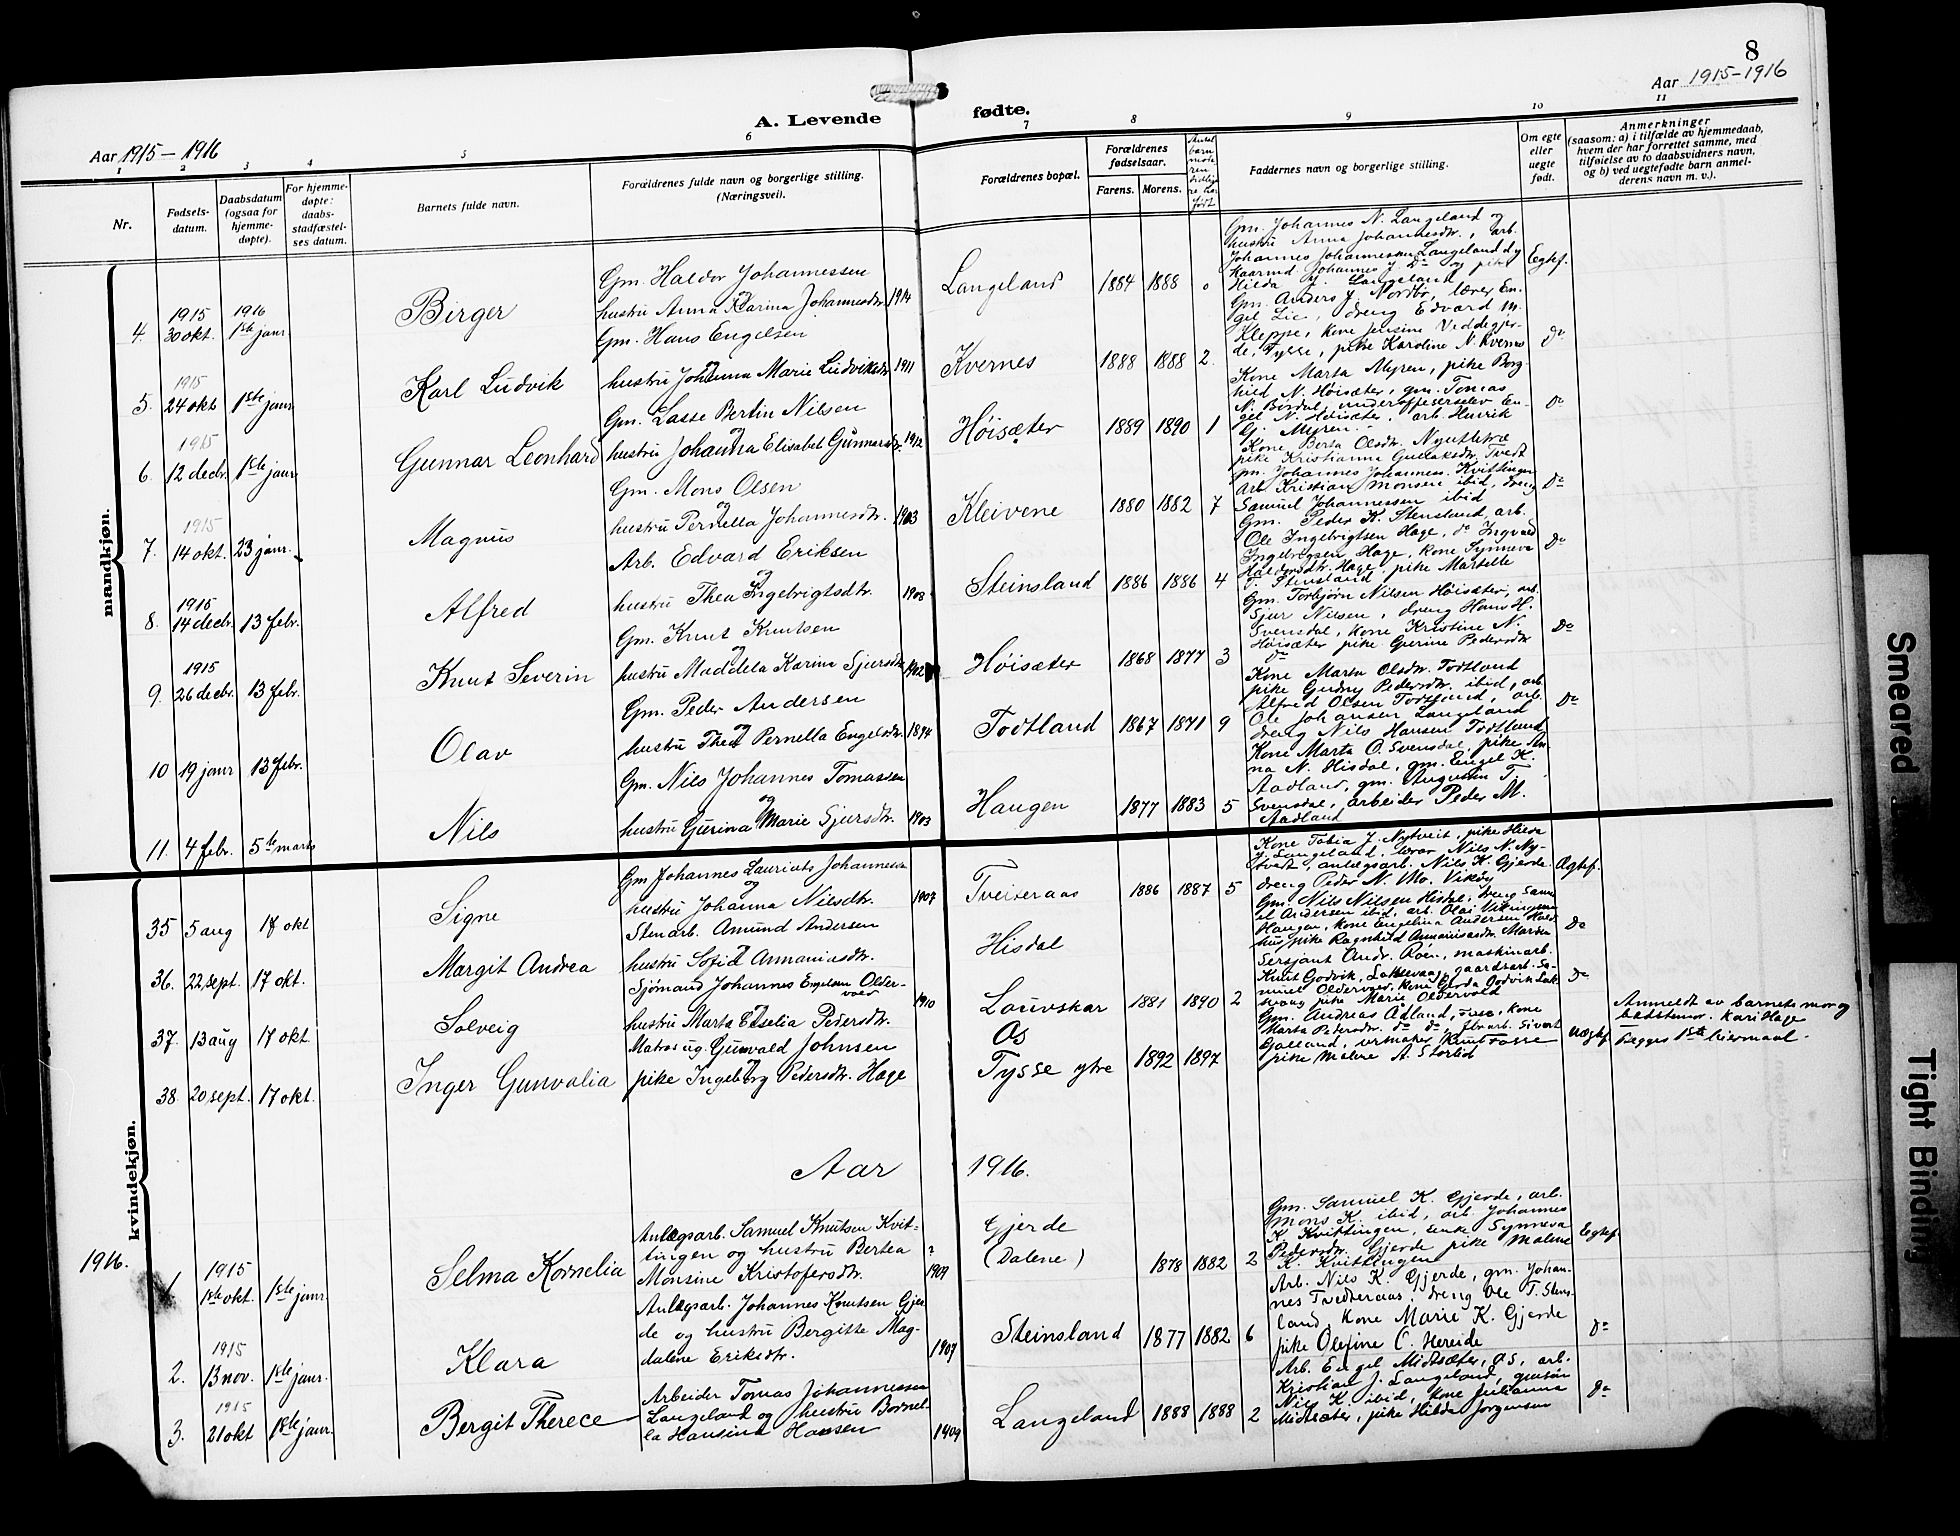 8
Aar 1915-1916
A. Levende fødte.
Aar 1915 - 1916
1 2 3 4 5 6 7 8 9 10 11
Nr.
Fødsels-
datum.
Daabsdatum
(ogsaa for
hjemme-
døpte).
For hjemme-
døpte:
daabs-
stadfæstel-
ses datum.
Barnets fulde navn.
Forældrenes fulde navn og borgerlige stilling.
(Næringsvei).
Forældrenes bopæl.
Forældrenes
fødselsaar.
Farens. Morens.
Faddernes navn og borgerlige stilling.
Om egte
eller
uegte
født.
Anmerkninger
(saasom: a) i tilfælde av hjemmedaab,
hvem der har forrettet samme, med
tilføielse av to daabsvidners navn,
og b) ved uegtefødte barn anmel-
derens navn m. v.).
mandkjøn.
4. 1915 30 okt. 1916 1ste janr Birger
Gm. Haldor Johannessen
og
hustru Anna Karina Johannesdtr. 1914
Langeland 1884 1888 0
Gm. Johannes N. Langeland og
hustru Anna Johannesdtr., arb.
Johannes Johannessen Langeland dy
kaarmd. Johannes J. Do og pike
Hilda J. Langeland
Egtef.
5. 1915 24 okt 1ste janr Karl Ludvik
Gm. Hans Engelsen
og
hustru Johanna Marie Ludviksdtr 1911
Kvernes 1888 1888 2.
Gm. Anders J. Nordbø, lærer En-
gel Lie, dreng Edvard M.
Kleppe, kone Jensine Veddegjer-
de, Tysse, pike Karoline N. Kvernes
Do
6. 1915 12 decbr. 1ste janr Gunnar Leonhard
Gm. Lasse Bertin Nilsen
og
hustru Johanna Elisabet Gunnarsdtr. 1912
Høisæter 1889 1890 1
Kone Marta Myren, pike Borg-
hild N. Høisæter, gm. Tomas
N. Børdal, underofficerselev En-
gel N. Høisæter, arb. Henrik
G. Myren.
Do
7. 1915 14 okt. 23 janr. Magnus
Gm. Mons Olsen
og
hustru Pernella Johannesdtr. 1903
Kleivene 1880 1882 7
Kone Berta Olsdtr. Nyutletræ
pike Kristianna Gullaksdtr. Tvedt
gm. Johannes Johannesn. Kvittingen
arb. Kristian Monsen ibid, dreng
Samuel Johannessen ibid
Do
8. 1915 14 decbr. 13 febr. Alfred
Arb. Edvard Eriksen
og
hustru Thea Ingebrigtsdtr. 1908
Steinsland 1886 1886 4
Gm. Peder K. Stensland, arb.
Ole Ingebrigtsen Hage, do Ingvald
Ingebrigtsen Hage, kone Synneva
Haldorsdtr. Hage, pike Martelle
T. Stensland
Do
9. 1915 26 decbr. 13 febr. Knut Severin
Gm. Knut Knutsen
og
hustru Maddela Karina Sjursdtr 1902
Høisæter 1868 1877 3
Gm. Torbjørn Nilsen Høisæter, arb.
Sjur Nilsen, dreng Hans H.
Svensdal, kone Kristine N.
Høisæter pike Gurine Pedersdtr
do
Do
10 19 janr 13 febr. Olav
Gm. Peder Andersen
og
hustru Thea Pernella Engelsdtr. 1894
Todtland 1867 1871 9
Kone Marta Olsdtr. Todtland
pike Gudny Pedersdtr. ibid, arb.
Alfred Olsen Todtland, arb.
Ole Johansen Langeland
dreng Nils Hansen Todtland
Do
11. 4 febr. 5te marts Nils
Gm. Nils Johannes Tomassen
og
hustru Gurina Marie Sjursdtr. 1903
Haugen 1877 1883 5
Kone Marta O. Svensdal, pike An-
na N. Hisdal, gm. Engel K.
Aadland, gm. Augustin T.
Svensdal, arbeider Peder M.
Aadland
kvindekjøn.
35 5 aug 18 okt Signe
Gm Johannes Laurits Johannessen
og
hustru Johanna Nilsdtr. 1907
Tveiteraas 1886 1887 5
Kone Tobia J. Nytveit, pike Hilda
J. Langeland, lærer Nils N. Ny-
tvedt, anlægsarb. Nils K. Gjerde.
dreng Peder N. Mo. Vikøy
Ægtef.
36. 22 sept. 17 okt. Margit Andrea
Stenarb. Amund Andersen
hustru Sofie Annaniasdtr.
Hisdal
Gm. Nils Nilsen Hisdal, dreng Samu
el Andersen ibid, arb. Olai Vikingsen
Haugen, kone Engelina Andersen Hald
hus, pike Ragnhild Annaniasdtr.
Do
37. 13 aug 17 okt. Solveig
Sjömand Johannes Engelsen Older-
vold
hustru Marta Eliselia Pedersdtr. 1910
Lauvskar 1881 1890 2
Os
Sersjant Andr. Röen, maskinarb.
Knut Godvik, Laksevaag, gaardsarb. Sa-
muel Oldervold, kone Gerda Godvik Lak-
sevaag pike Marie Oldervold
Do
38. 20 sept. 17 okt. Inger Gunvalia
Matros ug. Gunvald Johnsen
og
pike Ingeborg Pedersdtr. Hage
Tysse ytre 1892 1897
Gm. Andreas Ådland, Tysse, kone
Marta Pedersdtr. do do, fbr.arb. Sivert
Gaaland, urmaker Knut Tosse
pike Malene A. Storlid
Uægtef
Anmeldt av barnets mor og
bedstemor. Kari Hage
Begges 1ste leiermaal.
Aar 1916.
1916.
1 1915 1ste okt. 1ste janr. Selma Kornelia
Anlægsarb. Samuel Knutsen Kvit-
tingen og hustru Bertea
Monsine Kristofersdtr. ? 1909
Gjerde
(Dalene) 1878 1882 2
Gm. Samuel K. Gjerde, arb.
Mons K. ibid, arb. Johannes
K. Kvittingen, enke Synneva
Pedersdtr. Gjerde pike Malene
K. Kvittingen
Egtef.
2. 1915 13 nov. 1ste janr. Klara
Anlægsarb. Johannes Knutsen Gjer
de og hustru Bergitte Mag-
dalene Eriksdtr. 1907
Steinsland 1877 1882 6
Arb. Nils K. Gjerde, gm. Johan-
nes Tvedteraas, dreng Ole T. Stens-
land, kone Marie K. Gjerde
pike Olefine C. Hereide
Do
3. 1915 21 okt 1ste janr. Bergit Therece
Arbeider Tomas Johannessen
Langeland og hustru Bornel-
la Hansina Hansen 1909
Langeland 1888 1888 2
Arb. Engel Midtsæter, Os, arb.
Kristian J. Langeland, gmsøn
Nils K. ibid, kone Julianna
Midtsæter, pike Hilda Jørgensen
Do
Smeared
Tight Binding